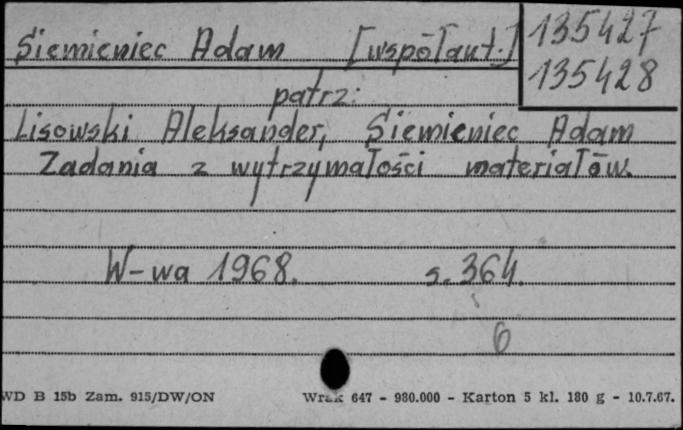 Siemieniec Adam [współaut.]
135427
135428
patrz:
Lisowski Aleksander, Siemieniec Adam
Zadania z wytrzymałości materiałów.
W-wa 1968. s. 364.
6
WD B 15b Zam. 915/DW/ON Wrak 647 - 980.000 - Karton 5 kl. 180 g - 10.7.67.